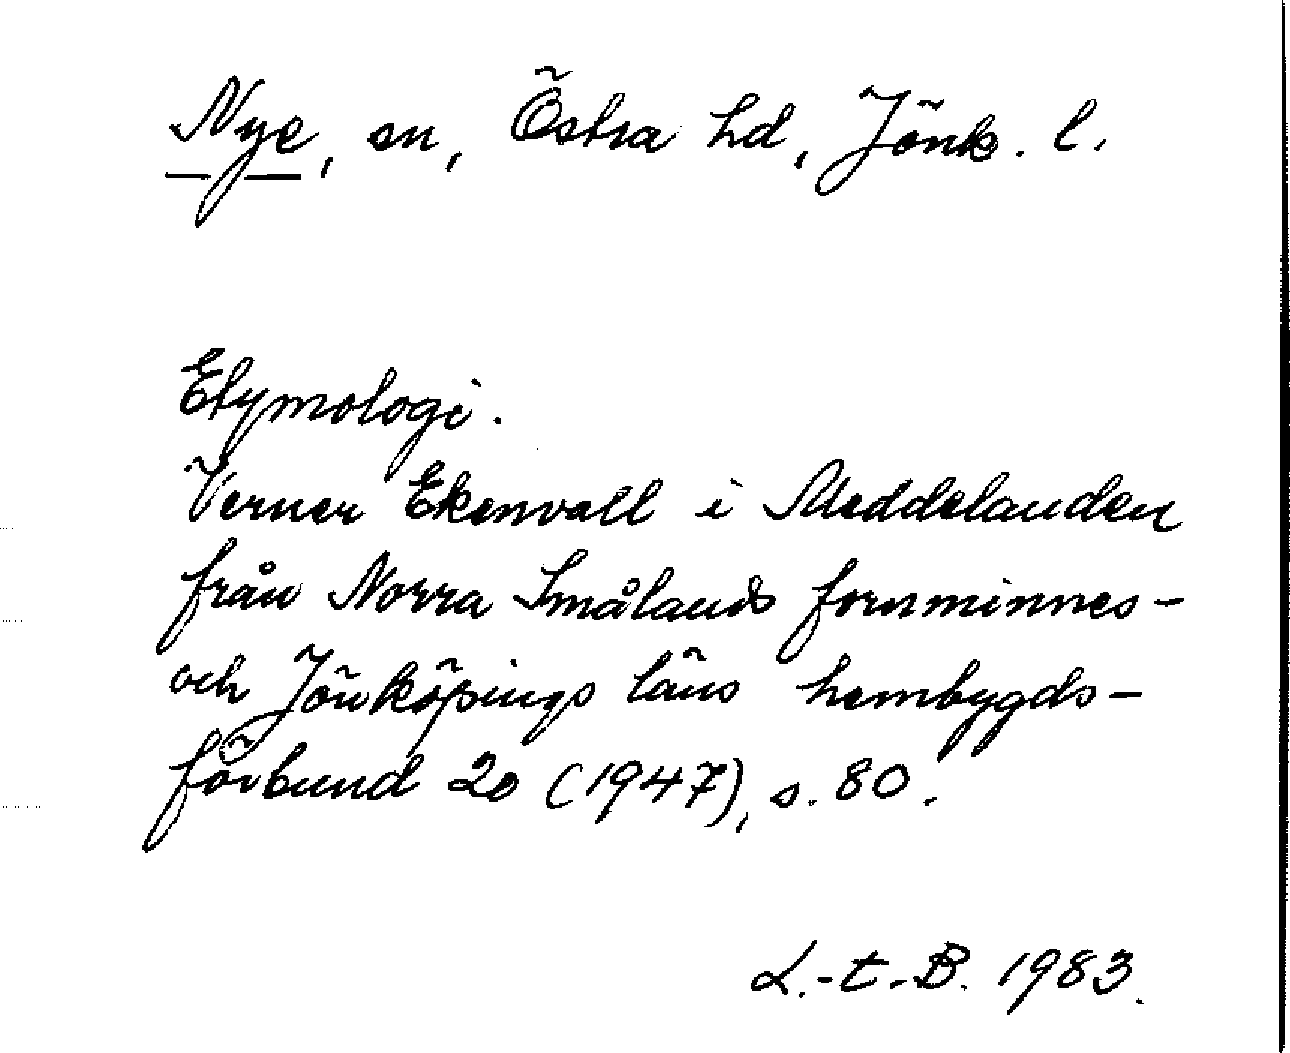 Nye, sn, Östra hd, Jönk. l.
Etymologi.
Verner Ekenvall i Meddelanden
från Norra Smålands fornminnes-
och Jönköpings läns hembygds-
förbund 20 (1947), s. 80.
L.-t.-B. 1983.